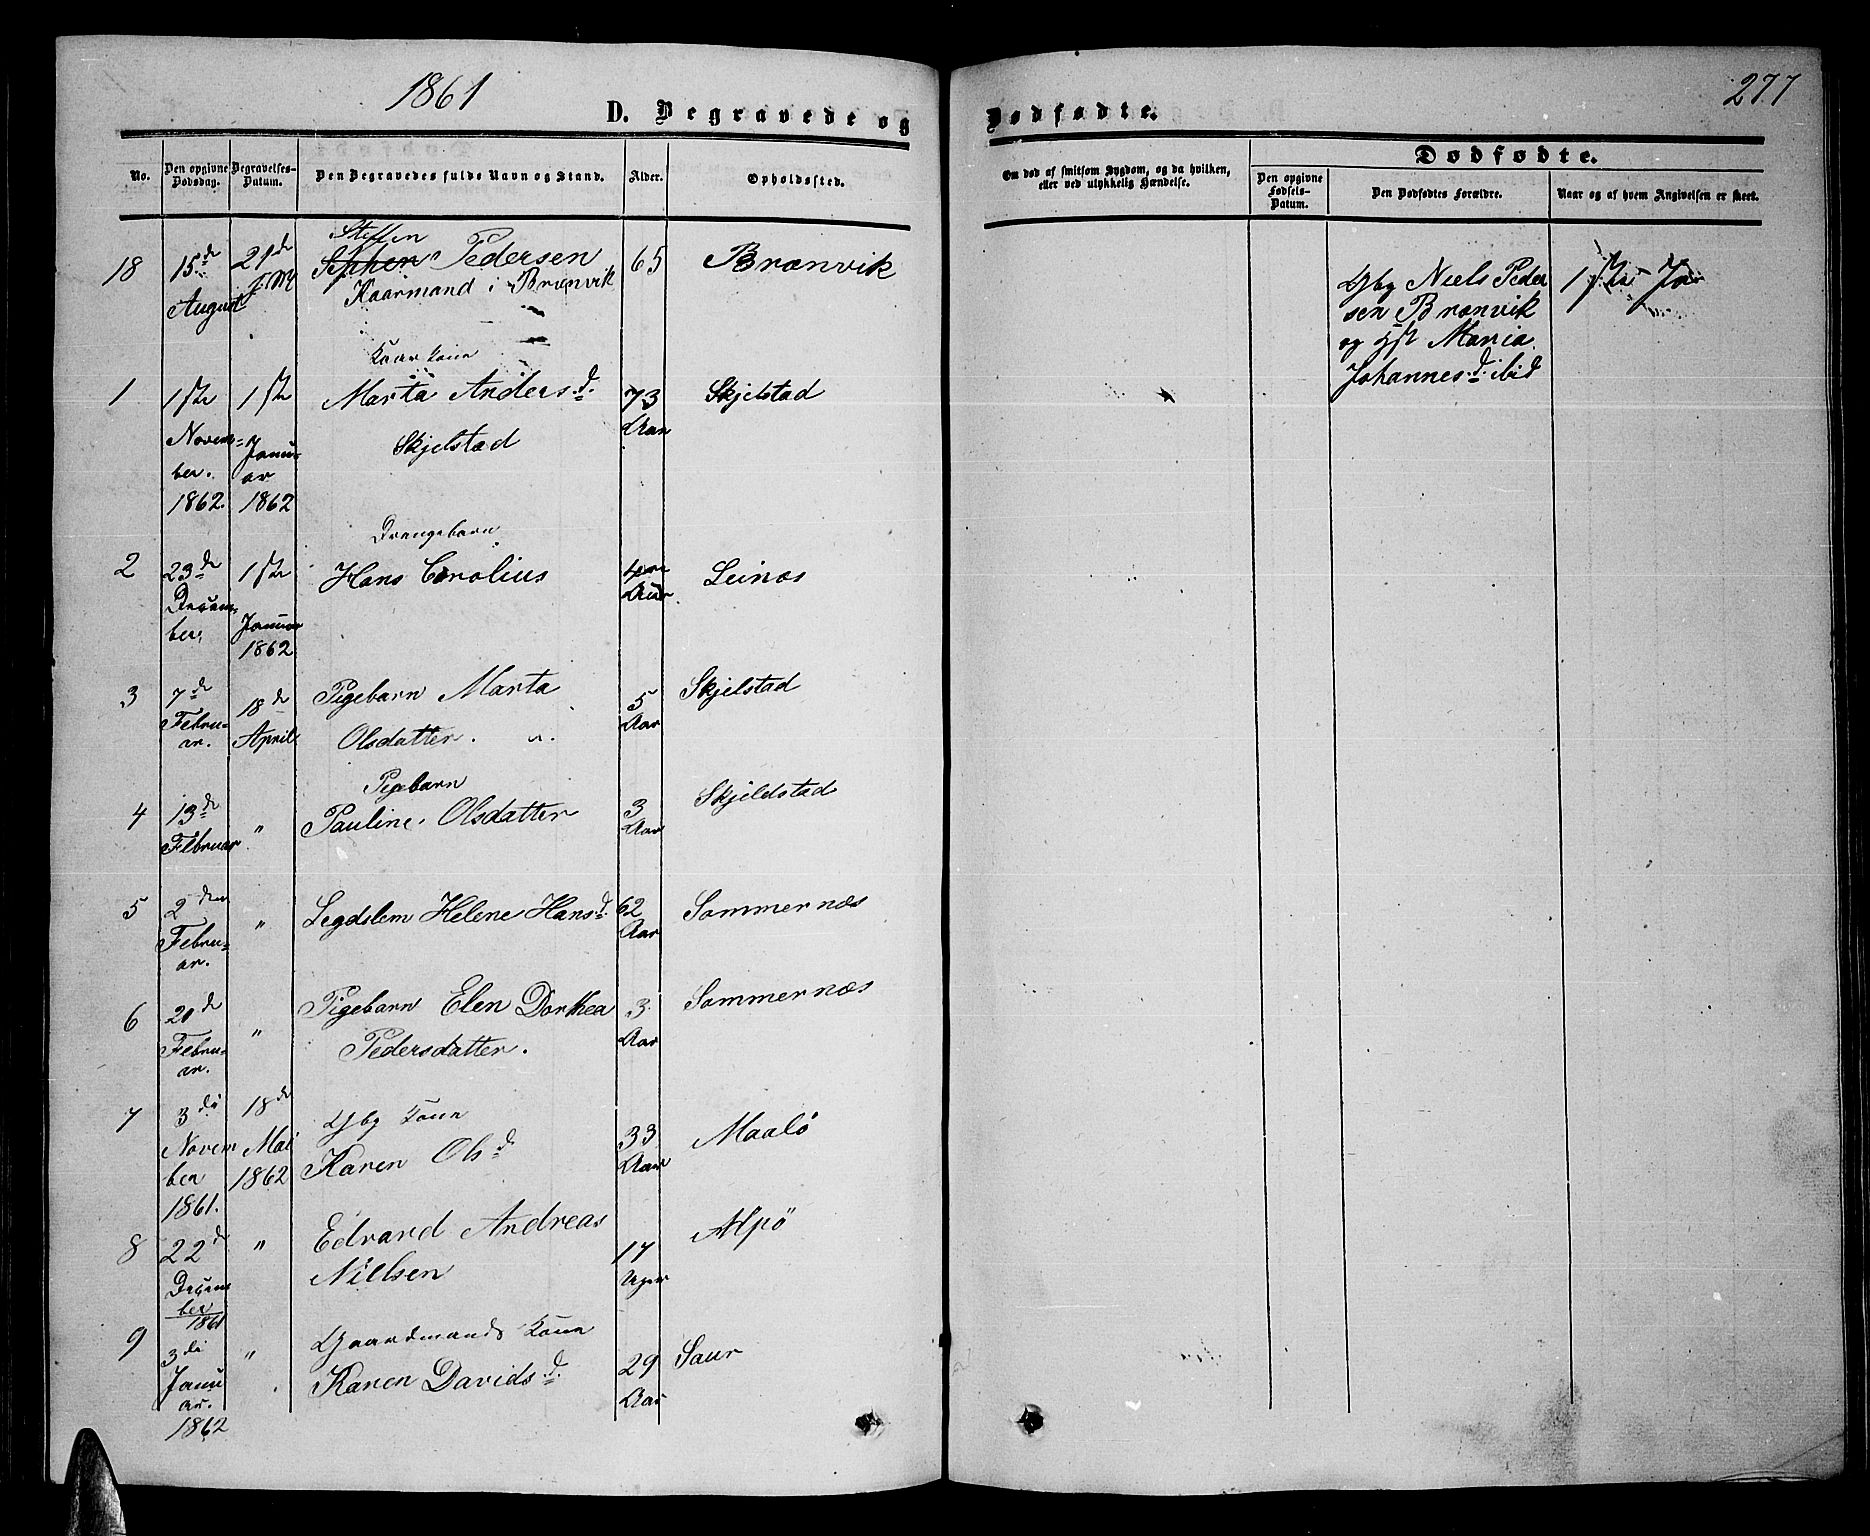 1861
277
D. Begravede og Dødfødte.
No.
Den opgivne Dødsdag.
Begravelses-Datum.
Den Begravedes fulde Navn og Stand.
Alder.
Opholdssted.
Om død af smitsom Sygdom, og da hvilken, eller ved ulykkelig Hændelse.
Dødfødte.
Den opgivne Fødsels-Datum.
Den Dødfødtes Forældre.
Naar og af hvem Angivelsen er skeet.
18 15de August 21de Steffen Pedersen 65 Brænvik
Kaarmand i Brænvik
Gbr Niels Peder
sen Brænvik
og Hst Maria
Johannesd. ibid
1 1ste Novem=
ber.
1862. 1ste Januar
1862 Kaarkone
Marta Andersd.
Skjelstad 73
Aar Skjelstad
2 23de Decem=
ber. 1ste Januar
1862 Drengebarn
Hans Carolius Aar Leinæs
3 7de Februar. 18de April Pigebarn Marta
Olsdatter. 5
Aar Skjelstad
4 13de Februar " Pigebarn
Pauline Olsdatter 3
Aar Skjeldstad
5 2den Febru=
ar. " Legdslem Helene Hansd. 62
Aar Sommernæs
6 20de Febru=
ar. " Pigebarn Elen Dorthea
Pedersdatter. 3
Aar Sommernæs
7 3die Novem
ber
1861. 18de Mai
1862 Gbr Kone
Karen Olsd. 33
Aar Maalö
8 22de Decem
ber
1861 " Edvard Andreas
Nielsen 17
Uger Alpö
9 3die Janu
ar.
1862 " Gaardmands Kone
Karen Davidsd. 29
Aar Saur